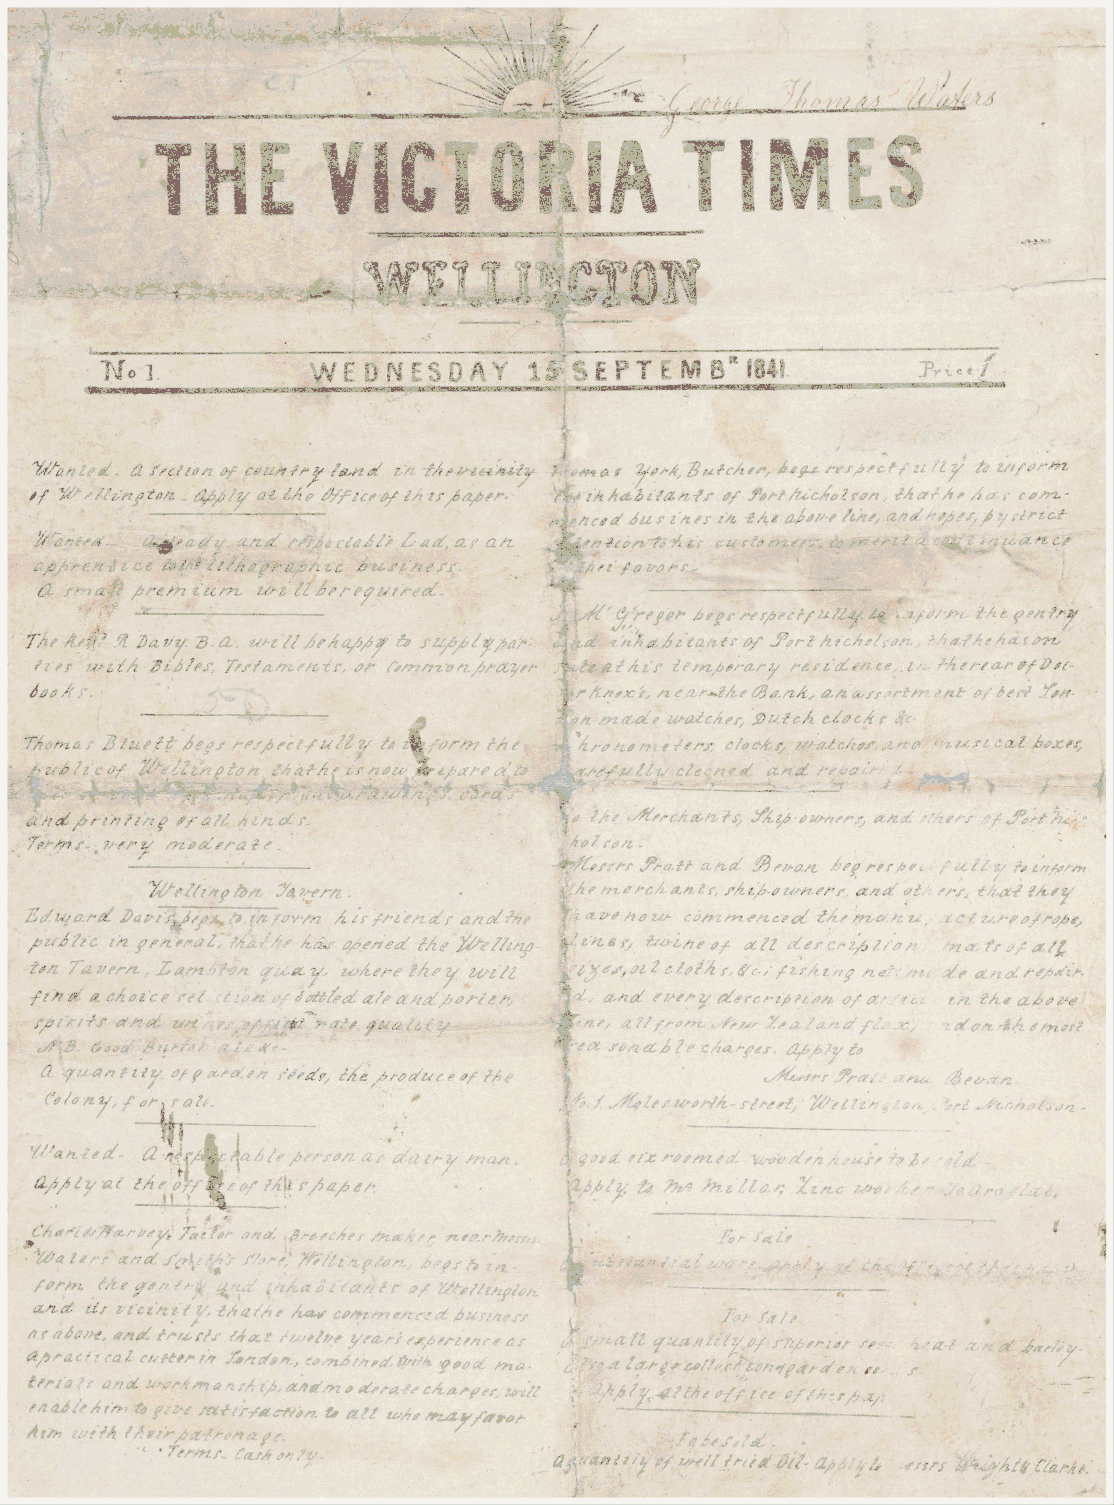 George Thomas Waters
THE VICTORIA TIMES
WELLINGTON
No 1.
WEDNESDAY 15 SEPTEMBR 1841.
Price 1/
Wanted - A section of country land in the vicinity
of Wellington - Apply at the Office of this paper.
Wanted - A steady and respectable Lad, as an
apprentice to the lithographic business.
A small premium will be required.
The Revd. R Davy B.A. will be happy to supply par-
ties with Bibles, Testaments, or Common prayer
books.
Thomas Bluett begs respectfully to inform the
public of Wellington that he is now prepared to
cards
and printing of all kinds.
Terms - very moderate.
Wellington Tavern.
Edward Davis, begs to inform his friends and the
public in general, that he has opened the Welling-
ton Tavern, Lambton quay, where they will
find a choice selection of bottled ale and porter,
spirits and wines of first rate quality
N.B. Good Burton ale &c-
A quantity of garden seeds, the produce of the
Colony, for sale.
Wanted - A respectable person as dairy man.
Apply at the office of this paper.
Charles Harvey, Tailor and Breeches maker, near Messrs.
Waters and Smith's Store, Wellington, begs to in-
form the gentry and inhabitants of Wellington
and its vicinity, that he has commenced business
as above, and trusts that twelve years experience as
a practical cutter in London, combined with good ma-
terials and workmanship, and moderate charges, will
enable him to give satisfaction to all who may favor
him with their patronage.
Terms - Cash only.
Thomas York, Butcher, begs respectfully to inform
the inhabitants of Port nicholson, that he has com-
menced busines in the above line, and hopes, by strict
attention to his customers, to merit a continuance
of their favors -
Mc Gregor begs respectfully to inform the gentry
and inhabitants of Port nicholson, that he has on
sale at his temporary residence, in the rear of Doc-
tor Knox's, near the Bank, an assortment of best Lon-
don made watches, Dutch clocks &c
Chronometers, clocks, watches, and musical boxes,
carefully cleaned and repair
To the Merchants, Ship-owners, and others of Port Ni-
cholson.
Messrs Pratt and Bevan beg respectfully to inform
the merchants, shipowners, and others, that they
have now commenced the manufacture of rope,
lines, twine of all description mats of all
sizes, oil cloths, &c; fishing nets made and repair-
ed, and every description of article in the above
line, all from New Zealand flax, and on the most
reasonable charges. Apply to
Messrs Pratt and Bevan.
No 1. Molesworth-street, Wellington, Port Nicholson-
A good six roomed wooden house to be sold -
Apply to Mr Millar, Zinc worker Te Aro flat.
For Sale
substantial apply at the office of this paper
For Sale.
A small quantity of superior seed wheat and barley-
Also a large collection of garden seeds
Apply at the office of this pap
To be sold.
A quantity of well tried Oil - Apply to Messrs Wright & Clarke.